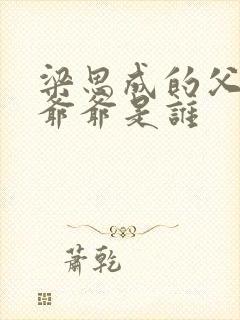 梁思成的父
爺爺是誰
蕭乾